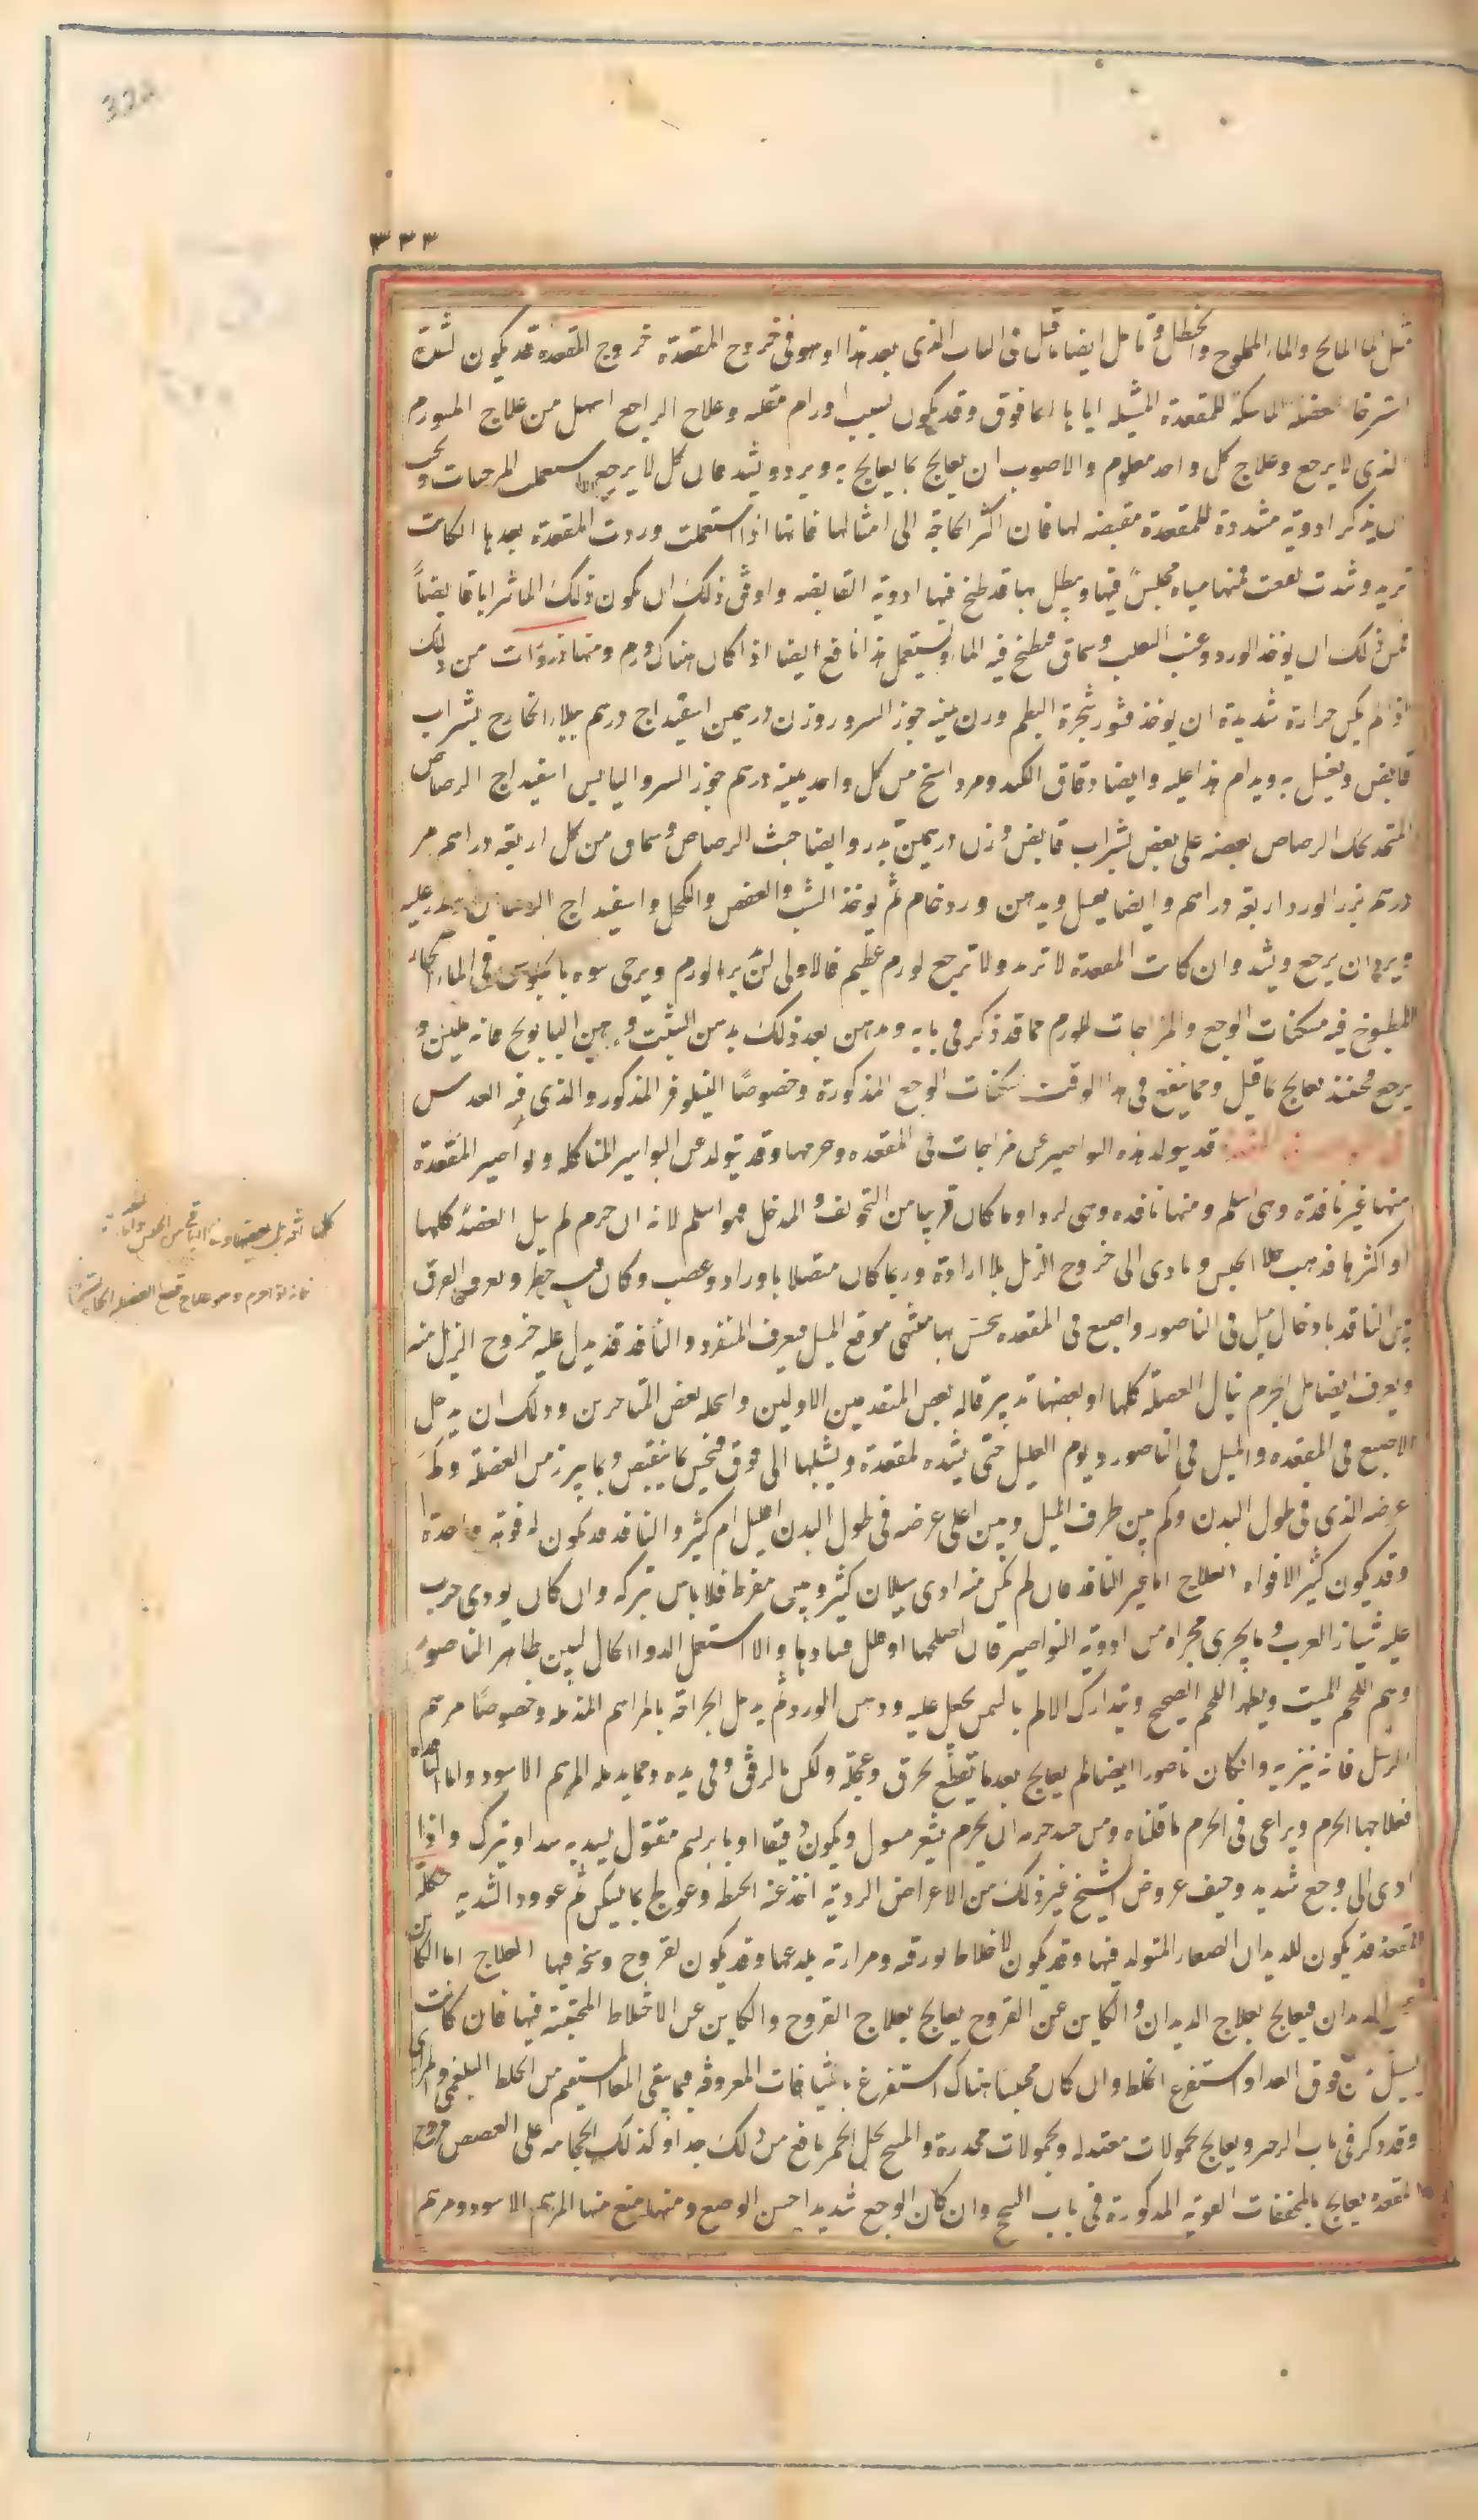 ٣٣٣
مثل الماء المالح والماء المملوح والخطل وتامل ايضا ما قيل فى الباب الذى بعد هذا وهو فى خروج المقعدة خروج المقعدة قد يكون لشدة
استرخا العضلة الماسكة للمقعدة المشيله اياها الى فوق وقد يكون بسبب اورام مقلبه وعلاج الراجع اسهل من علاج المتورم
الذى لا يرجع وعلاج كل واحد معلوم والاصوب ان يعالج بما يعالج به ويرد ويشد فان كان لا يرجع استعملت المرخيات و
ان يذكر ادوية مشددة للمقعدة مقبضه لها فان اكثر الحاجة الى امثالها فانها اذا استعملت وردت المقعدة بعدها الكانت
ترجع وشدت نفعت فمنها مياه يجلس فيها ويطبل بها قد طبخ فيها ادوية القابضه واوفق ذلك ان يكون ذلك الماء شرابا قابضاً
فمن ذلك ان يوخذ الورد وعنب الثعلب وسماق فيطبخ فيه الماء ويستعمل هذا نافع ايضا اذا كان هناك ورم ومنها ذرورات من ذلك
اذا لم يكن حرارة شديدة ان يوخذ قشور شجرة البطم وزن جوز السرو وزن درهمين اسفيداج درهم يبلل الخارج بشراب
قابض ويغسل به ويدام هذا عليه وايضا دقاق الكندر ومرداسنج من كل واحد درهم جوز السرو اليابس اسفيداج الرصاص
المتخذ بحك الرصاص بعضه على بعض بشراب قابض وزن درهمين يذر وايضا خبث الرصاص وسماق من كل اربعة دراهم مر
درهم بزر الورد اربعة دراهم وايضا يغسل ويدهن ورد خام ثم يوخذ الشب والعفص والكحل واسفيداج الرصاص ويذر عليه
ويرد ان يرجع ويشد وان كانت المقعدة لا ترد ولا ترجع لورم عظيم فالاولى ان يبرا الورم ويرخى بالجلوس فى الماء الحار
المطبوخ فيه مسكنات الوجع والمرخيات للورم مما قد ذكر فى بابه ويدهن بعد ذلك بدهن الشبث ودهن البابونج فانه يلين و
يرجع فحينئذ يعالج بما قيل ومما ينفع فى هذا الوقت مسكنات الوجع المذكورة وخصوصًا النيلوفر المذكور والذى فيه العدس
قد يتولد هذه النواصير عن خراجات فى المقعدة وخرمها وقد يتولد عن البواسير المتاكلة ونواصير المقعدة
منها غير نافذة وهى اسلم ومنها نافذه وهى اردا وما كان قريبا من التجويف والمدخل فهو اسلم لانه ان خرم لم ينل العضلة كلها
او اكثرها فذهب الحبس وتادى الى خروج الزبل بلا ارادة وربما كان متصلا باوراد وعصب وكان فيه خطر ويعرف الفرق
بين النافذ بادخال ميل فى الناصور واصبع فى المقعده يحس بها منتهى موقع الميل فيعرف المنفذ والنافذ قد يدل عليه خروج الزبل منه
ويعرف ايضا هل الخرم ينال العضلة كلها او بعضها بتدبير قاله بعض المتقدمين الاولين وانتحله بعض المتاخرين وذلك ان يدخل
الاصبع فى المقعده والميل فى الناصور ويوم العليل حتى يشده لمقعدة ويشيلها الى فوق فيحس بما ينقبض وبما يبرز من العضلة و
عرضه الذى فى طول البدن وكم بين طرف الميل وبين اعلى عرضه فى طول البدن اقليل ام كثير والنافذ قد يكون له فوهة واحدة
وقد يكون كثير الافواه العلاج اما غير النافذ فان لم يكن منه اذى سيلان كثير ونتن مفرط فلا باس بتركه وان كان يودى جرب
عليه شياف العرب وما يجرى مجراه من ادوية النواصير فان اصلحها او قلل فسادها والا استعمل الدواء الاكال ليبين ظاهر الناصور
ويهم اللحم الميت ويظهر اللحم الصحيح ويتدارك الالم بالسمن يجعل عليه ودهن الورد ثم يدمل الجراحة بالمراهم المدمله وخصوصًا مرهم
الرسل فانه يبريه وان كان ناصورا ايضا لم يعالج بعدما يقطع بحرق وعجلة ولكن بالرفق وفى مدة ومما يدمله المرهم الاسود واما النافذه
فعلاجها الخرم ويراعى فى الخرم ما قلناه ومن جيد خرمه ان يخرم بشعر مفتول ويكون دقيقا او بابريسم مفتول يشد به شدا ويترك واذا
ادى الى وجع شديد وخيف عروض التشنج وغير ذلك من الاعراض الردية اخذ عنه الخيط وعولج بما يسكن ثم عوود الشد به حكة
المقعدة قد يكون للديدان الصغار المتولده فيها وقد يكون لاخلاط بورقية ومرارية يلدعها وقد يكون لقروح وسخة فيها العلاج اما الكاين
عن الديدان فيعالج بعلاج الديدان والكاين عن القروح يعالج بعلاج القروح والكاين عن الاخلاط المحتبسة فيها فان كانت
تسيل من فوق الغذاء واستفرغ الخلط وان كان محتبسًا هناك استفرغ بالشيافات المعروفة فيما ينقى المعا المستقيم من الخلط البلغمى والمرارى
وقد ذكر فى باب الزحير ويعالج بحمولات معتدله وبحمولات مخدرة والمسح بخل الخمر نافع من ذلك جدا وكذلك الحجامه على العصعص قروح
المقعده يعالج بالمجففات القوية المذكورة فى باب السحج وان كان الوجع شديدا ومنها المرهم الاسود ومرهم